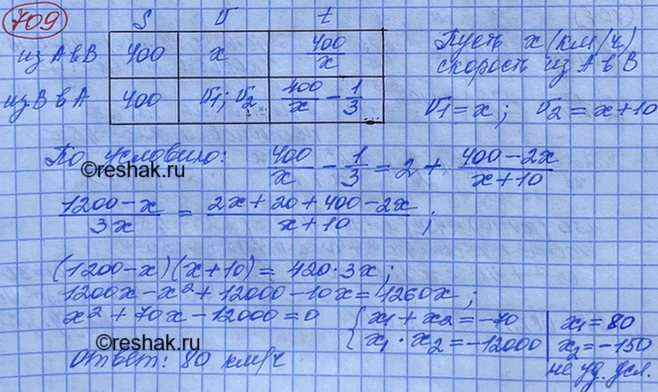 709
S v t
из A в B 400 x 400/x
из B в A 400 v1; v2 400/x − 1/3
Пусть x (км/ч)
скорость из A в B
v1 = x; v2 = x+10
По условию: 400/x − 1/3 = 2 + (400−2x)/(x+10)
©reshak.ru
(1200−x)/3x = (2x+20+400−2x)/(x+10);
(1200−x)(x+10) = 420·3x;
1200x−x²+12000−10x=1260x;
x²+70x−12000=0
{x1+x2=−70
x1·x2=−12000
x1=80
x2=−150
не уд. усл.
Ответ: 80 км/ч
©reshak.ru